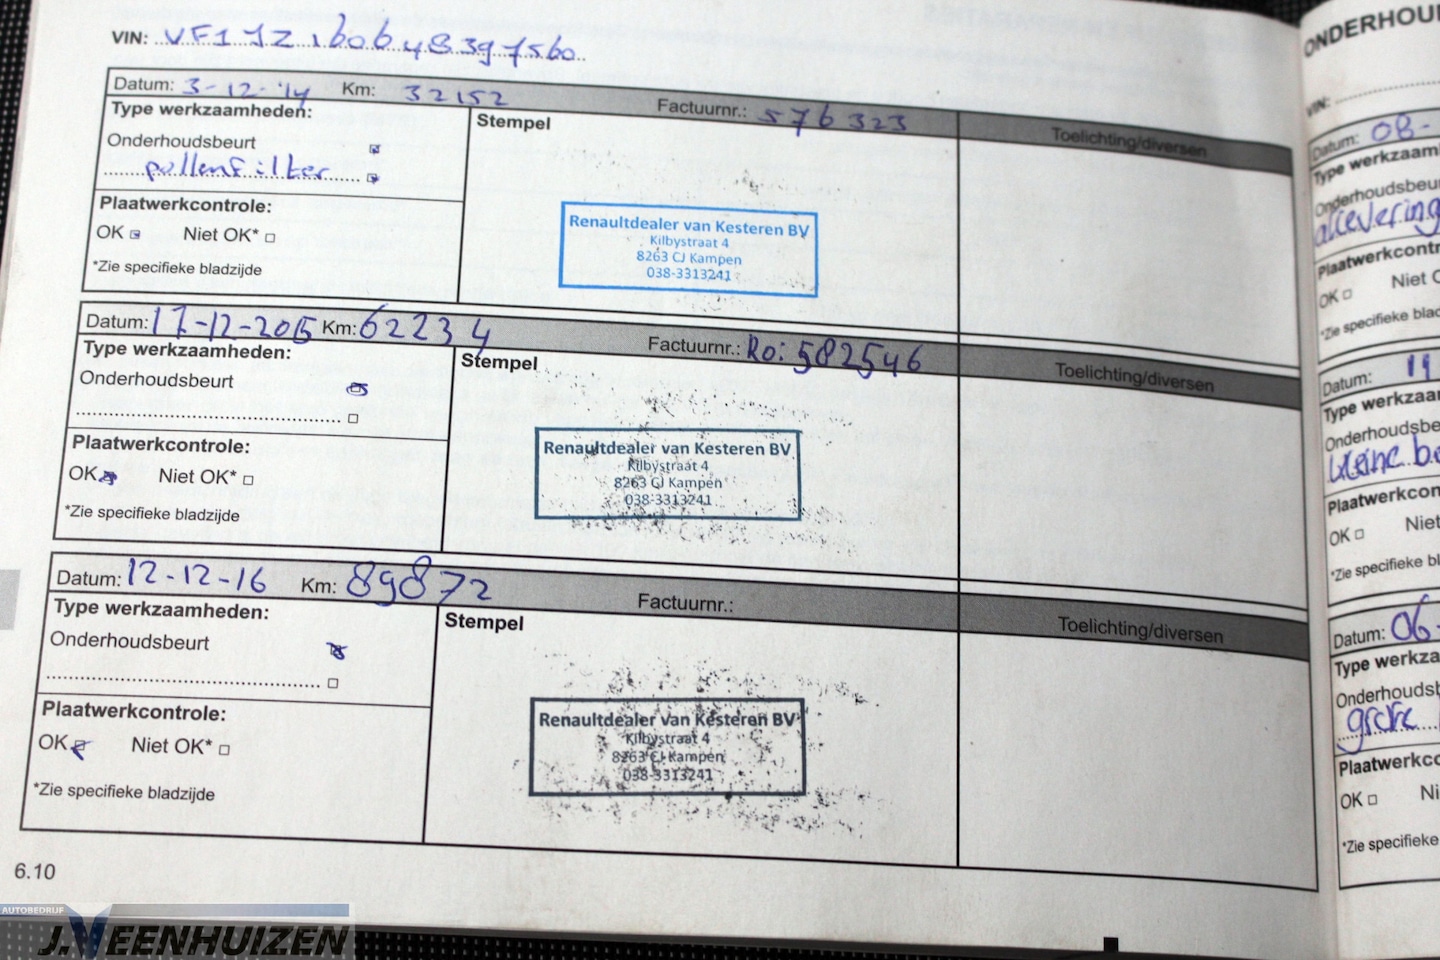 VIN: VF1JZ1B0648397560
Datum: 3-12-'14 Km: 32152 Factuurnr.: 576323
Type werkzaamheden: Stempel Toelichting/diversen
Onderhoudsbeurt
pollenfilter
Plaatwerkcontrole:
OK Niet OK*
*Zie specifieke bladzijde
Renaultdealer van Kesteren BV
Kilbystraat 4
8263 CJ Kampen
038-3313241
Datum: 17-12-2015 Km: 62234 Factuurnr.: Ro: 582546
Type werkzaamheden: Stempel Toelichting/diversen
Onderhoudsbeurt
Plaatwerkcontrole:
OK Niet OK*
*Zie specifieke bladzijde
Renaultdealer van Kesteren BV
Kilbystraat 4
8263 CJ Kampen
038-3313241
Datum: 12-12-16 Km: 89872 Factuurnr.:
Type werkzaamheden: Stempel Toelichting/diversen
Onderhoudsbeurt
Plaatwerkcontrole:
OK Niet OK*
*Zie specifieke bladzijde
Renaultdealer van Kesteren BV
Kilbystraat 4
8263 CJ Kampen
038-3313241
6.10
ONDERHOU
VIN:
Datum: 08-
Type werkzaam
Onderhoudsbeu
aflevering
Plaatwerkcontr
OK Niet O
*Zie specifieke blad
Datum: 11
Type werkzaa
Onderhoudsbe
kleine be
Plaatwerkcon
OK Niet
*Zie specifieke bl
Datum: 06-
Type werkza
Onderhouds
grote
Plaatwerkco
OK Ni
*Zie specifieke
AUTOBEDRIJF
J.VEENHUIZEN